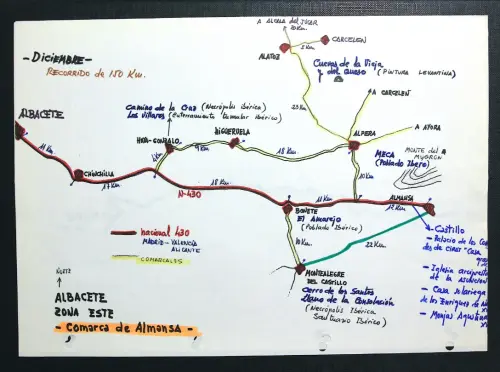 A ALCALA DEL JUCAR
20 Km.
CARCELEN
5 Km.
ALATOZ
- DICIEMBRE -
RECORRIDO de 150 Km.
Cuevas de la Vieja
y del Queso (PINTURA LEVANTINA)
23 Km.
A CARCELEN
Camino de la Cruz (Necrópolis ibérica)
Los Villares (Enterramiento tumular ibérico)
ALBACETE
HOYA-GONZALO
HIGUERUELA
ALPERA
A AYORA
11 Km.
9 Km.
18 Km.
MECA
(Poblado Ibero)
MONTE DEL
MUGRON
CHINCHILLA
17 Km.
N-430
18 Km.
10 Km.
11 Km.
ALMANSA
12 Km.
BONETE
El Amarejo
(Poblado Ibérico)
nacional 430
MADRID - VALENCIA
ALICANTE
COMARCALES
10 Km.
22 Km.
Castillo
- Palacio de los Co
des de Cirat "Casa
- Iglesia arcipres
de la Asunción
- Casa Solariega
de los Enriquez de
- Monjas Agustinas
NORTE
MONTEALEGRE
DEL CASTILLO
Cerro de los Santos
Llano de la Consolación
(Necrópolis Ibérica
Santuario Ibérico)
ALBACETE
ZONA ESTE
- Comarca de Almansa -